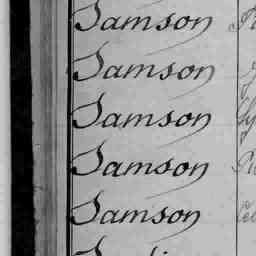 Samson
Samson
Samson
Samson
Samson